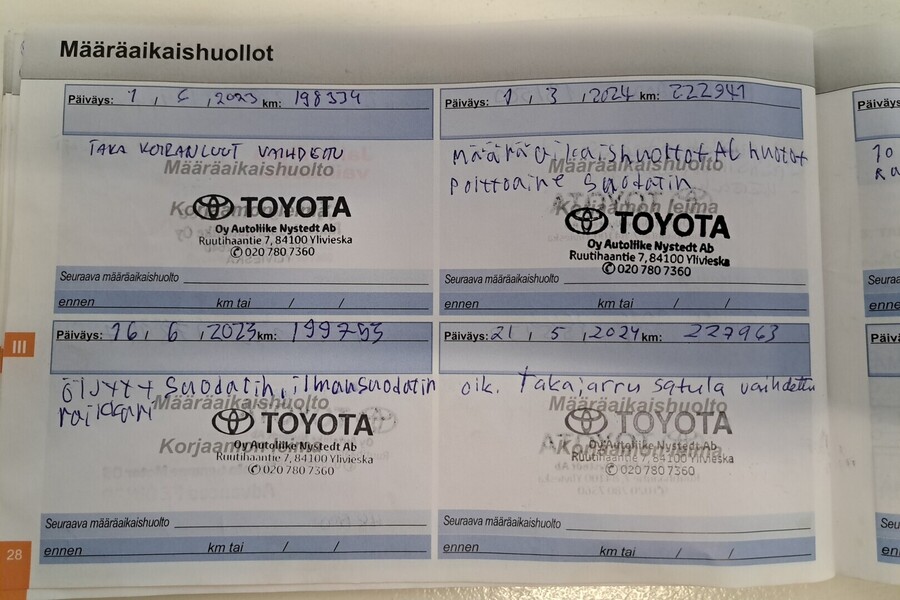 Määräaikaishuollot
Päiväys: 1, 6, 2023 km: 198334
TAKA KOIRANLUUT VAIHDETTU
Määräaikaishuolto
Korjaamon leima
TOYOTA
Oy Autoliike Nystedt Ab
Ruutihaantie 7, 84100 Ylivieska
✆ 020 780 7360
Seuraava määräaikaishuolto
ennen km tai / /
Päiväys: 1, 3, 2024 km: 222941
määräaikaishuollot
polttoaine suodatin
Määräaikaishuolto
Korjaamon leima
TOYOTA
Oy Autoliike Nystedt Ab
Ruutihaantie 7, 84100 Ylivieska
✆ 020 780 7360
Seuraava määräaikaishuolto
ennen km tai / /
III
Päiväys: 16, 6, 2023 km: 199753
öljyt + suodatin, ilmansuodatin
Määräaikaishuolto
Korjaamon leima
TOYOTA
Oy Autoliike Nystedt Ab
Ruutihaantie 7, 84100 Ylivieska
✆ 020 780 7360
Seuraava määräaikaishuolto
ennen km tai / /
Päiväys: 21, 5, 2024 km: 227963
oik. Takajarru satula vaihdettu
Määräaikaishuolto
Korjaamon leima
TOYOTA
Oy Autoliike Nystedt Ab
Ruutihaantie 7, 84100 Ylivieska
✆ 020 780 7360
Seuraava määräaikaishuolto
ennen km tai / /
28
Päiväys
10
Seu
enne
Päiväys:
Seu
enne